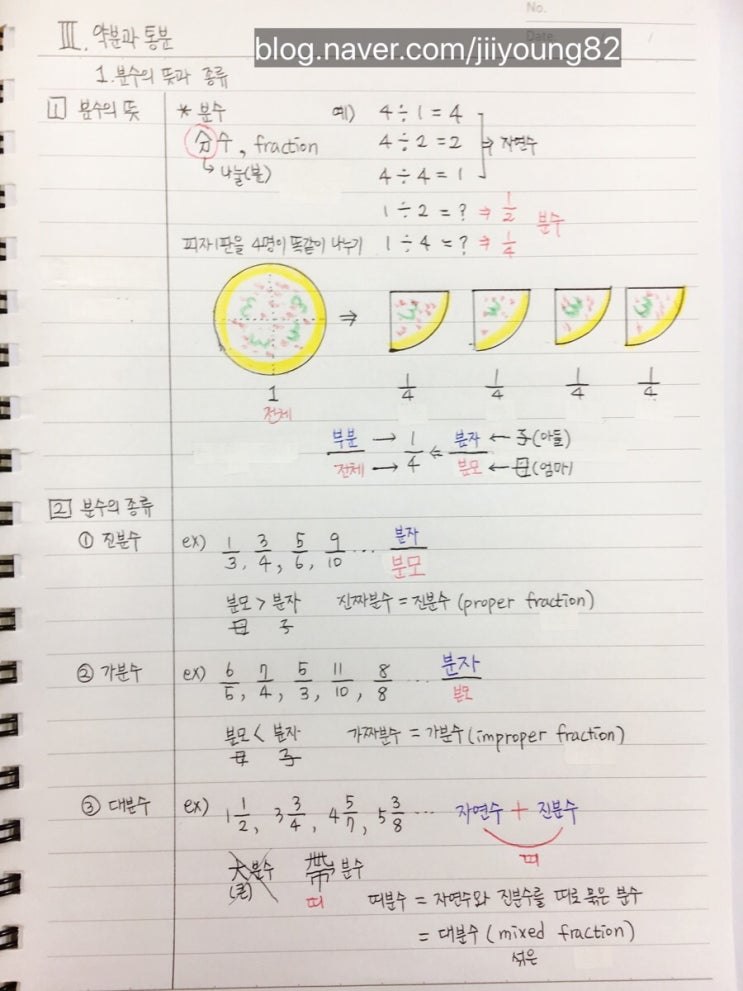 No.
Date.
blog.naver.com/jiiyoung82
Ⅲ. 약분과 통분
1. 분수의 뜻과 종류
1 분수의 뜻
* 분수
分수, fraction
↳ 나눌(분)
예) 4÷1=4
4÷2=2 ⇒ 자연수
4÷4=1
1÷2=? ⇒ 1/2 분수
1÷4=? ⇒ 1/4
피자 1판을 4명이 똑같이 나누기
⇒
1 1/4 1/4 1/4 1/4
전체
부분 → 1/4 ⇐ 분자 ← 子(아들)
전체 → 분모 ← 母(엄마)
2 분수의 종류
① 진분수 ex) 1/3, 3/4, 5/6, 9/10 … 분자/분모
분모 > 분자 진짜분수 = 진분수 (proper fraction)
母 子
② 가분수 ex) 6/5, 7/4, 5/3, 11/10, 8/8 … 분자/분모
분모 < 분자 가짜분수 = 가분수 (improper fraction)
母 子
③ 대분수 ex) 1 1/2, 3 3/4, 4 5/7, 5 3/8 … 자연수 + 진분수
띠
大분수 帶분수
(큰) 띠
띠분수 = 자연수와 진분수를 띠로 묶은 분수
= 대분수 (mixed fraction)
섞은